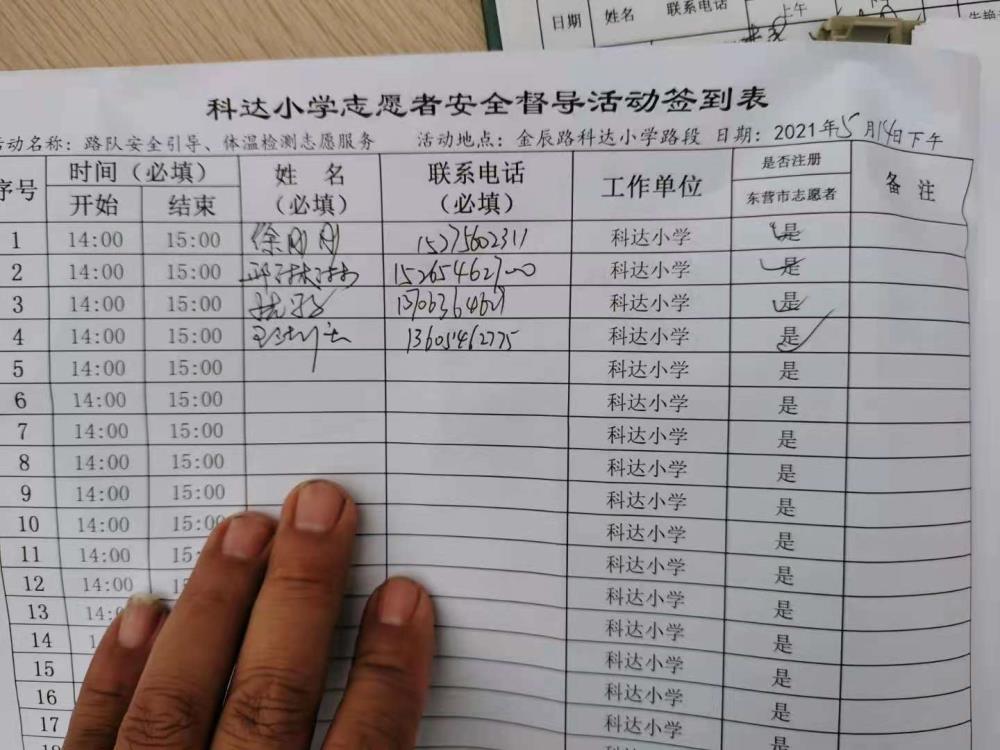 日期 姓名 联系电话 上午
科达小学志愿者安全督导活动签到表
活动名称：路队安全引导、体温检测志愿服务 活动地点：金辰路科达小学路段 日期：2021年5月14日下午
序号 时间（必填） 姓 名（必填） 联系电话（必填） 工作单位 是否注册 备 注
开始 结束 东营市志愿者
1 14:00 15:00 徐刚刚 15275602311 科达小学 是
2 14:00 15:00 邱林林 15265462700 科达小学 是
3 14:00 15:00 13706364621 科达小学 是
4 14:00 15:00 13605462775 科达小学 是
5 14:00 15:00 科达小学 是
6 14:00 15:00 科达小学 是
7 14:00 15:00 科达小学 是
8 14:00 15:00 科达小学 是
9 14:00 15:00 科达小学 是
10 14:00 15:00 科达小学 是
11 14:00 15: 科达小学 是
12 14:00 科达小学 是
13 14: 科达小学 是
14 科达小学 是
15 科达小学 是
16 科达小学 是
17 科达小学 是